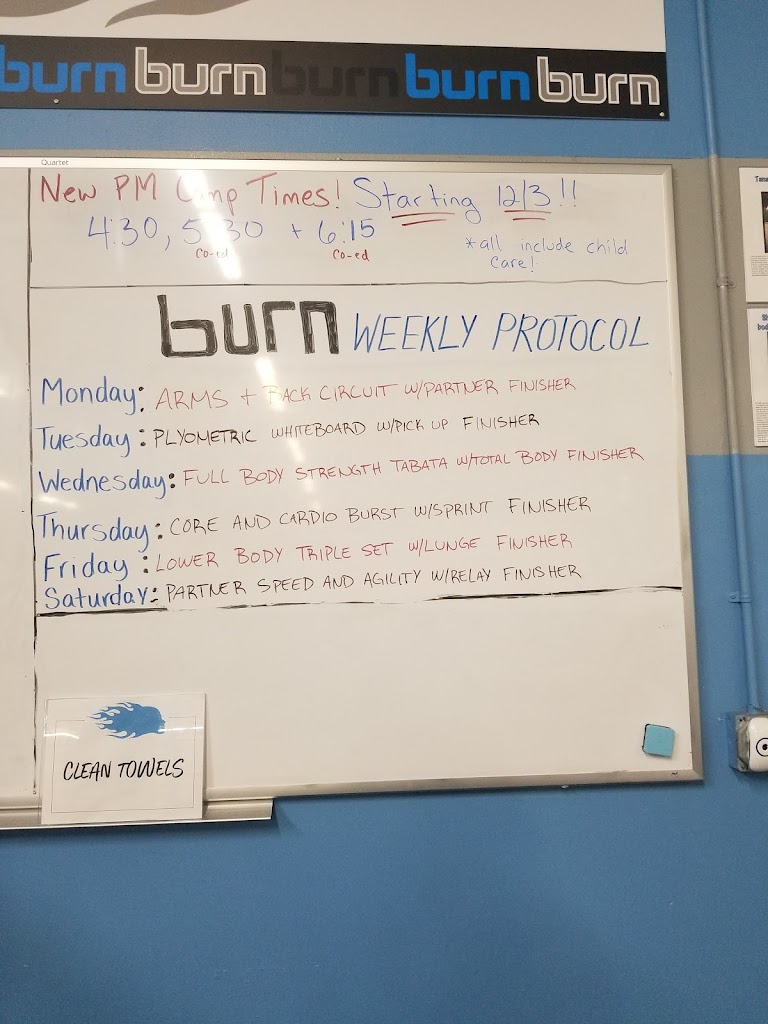 burn burn burn burn burn
Quartet
New PM Camp Times! Starting 12/3!!
4:30, 5:30 + 6:15
co-ed co-ed
*all include child
care!
burn WEEKLY PROTOCOL
Monday: ARMS + BACK CIRCUIT W/PARTNER FINISHER
Tuesday: PLYOMETRIC WHITEBOARD W/PICK UP FINISHER
Wednesday: FULL BODY STRENGTH TABATA W/TOTAL BODY FINISHER
Thursday: CORE AND CARDIO BURST W/SPRINT FINISHER
Friday: LOWER BODY TRIPLE SET W/LUNGE FINISHER
Saturday: PARTNER SPEED AND AGILITY W/RELAY FINISHER
CLEAN TOWELS